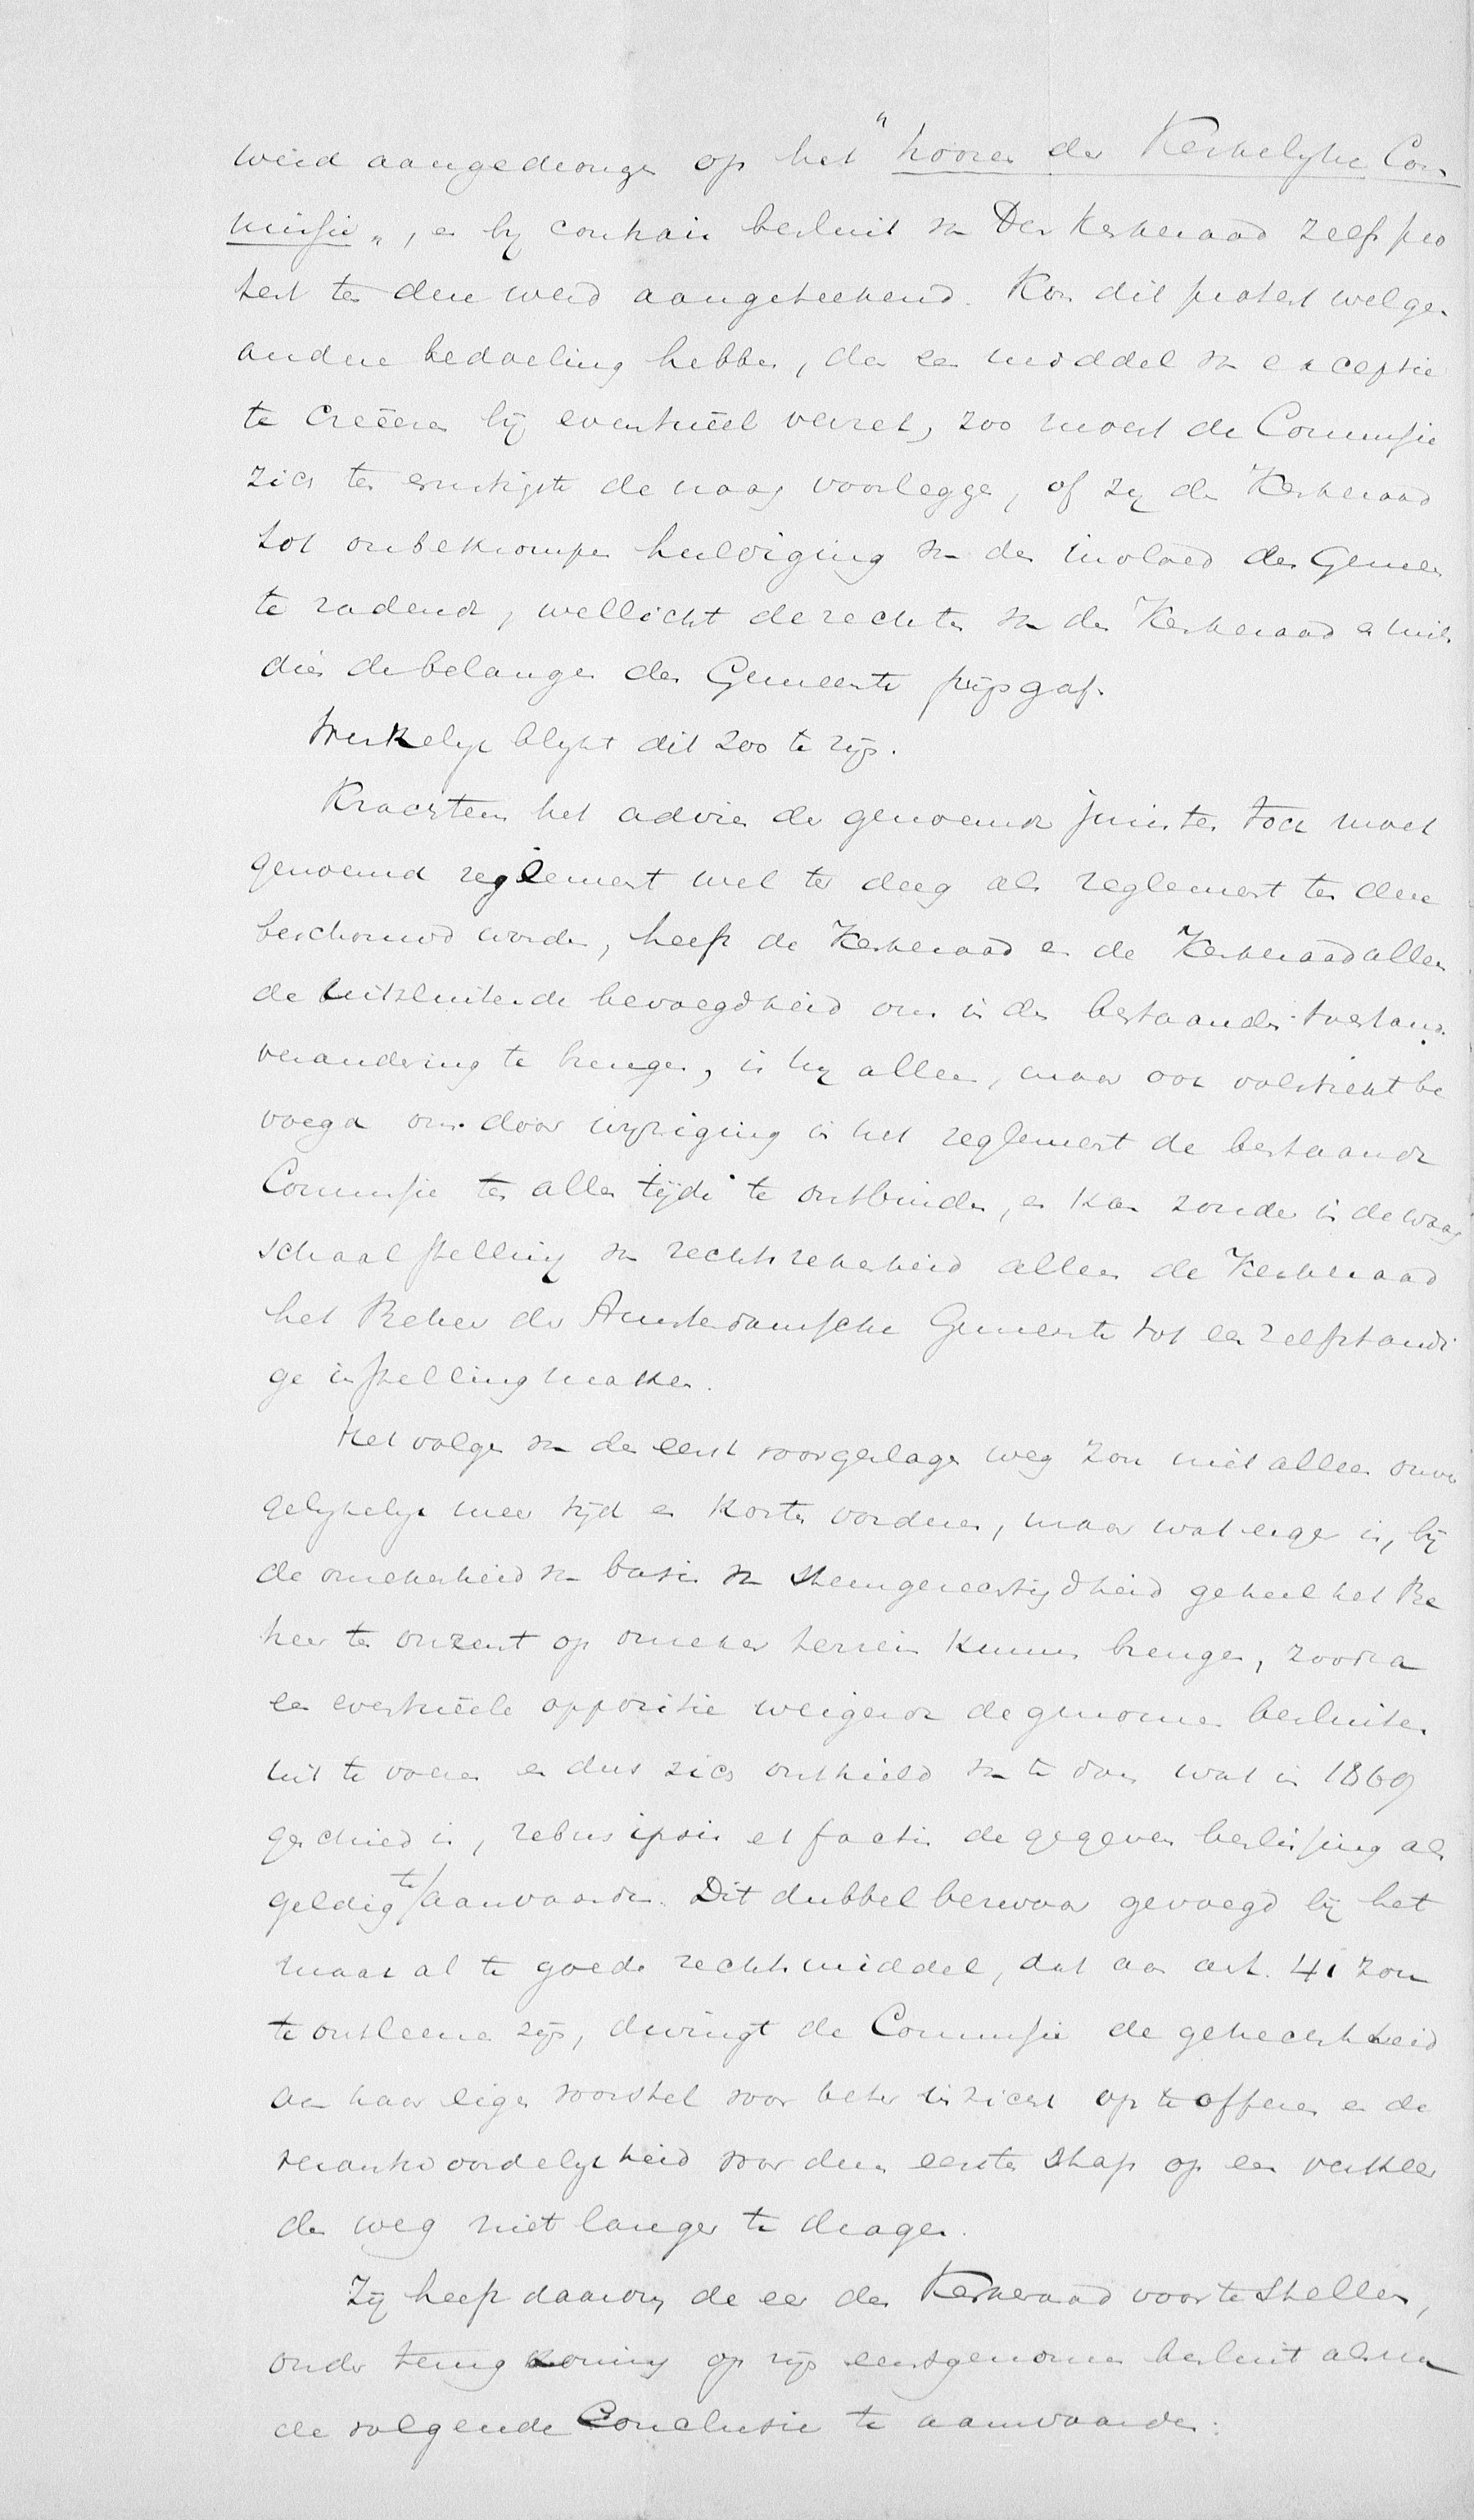 werd aangedrongen op het "hooren der Kerkelyke Com-
missie", en by contrair besluit van Den Kerkeraad zelfs pro
test ten dien werd aangeteekend. Kon dit protest wel geen
andere bedoeling hebben, dan een middel van exceptie
te creëeren bij eventueel verzet, zoo moest de Commissie
zich ten ernstigste de vraag voorleggen, of zy den Kerkeraad
tot onbekrompen huldiging van den invloed der Gemeen
te radend, wellicht de rechten van den Kerkeraad en mits
dien de belangen der Gemeente prijs gaf.
Werkelyk blykt dit zoo te zijn.
Krachtens het advies der genoemde juristen toch moet
genoemd reglement wel ter deeg als reglement ten dien
beschouwd worden, heeft de Kerkeraad en de Kerkeraad alleen
de uitsluitende bevoegdheid om in den bestaanden toestand
verandering te brengen, is hy alleen, maar ook volstrekt be
voegd om door wyziging in het reglement de bestaande
Commissie ten allen tijde te ontbinden, en kan zonder in de waag
schaal stelling van rechtszekerheid alleen de Kerkeraad
het Beheer der Amsterdamsche Gemeente tot een zelfstandi
ge instelling maken.
Het volgen van den eerst voorgeslagen weg zou niet alleen onver
gelykelyk meer tijd en kosten vorderen, maar wat erger is, bij
de onzekerheid van basis van stemgerechtigdheid geheel het Be
heer te onzent op onzeker terrein kunnen brengen, zoodra
een eventueele oppositie weigerde de genomen besluiten
uit te voeren en dus zich onthield van te doen wat in 1869
geschied is, rebus ipsis et factis de gegeven beslissing als
geldig te aanvaarden. Dit dubbel bezwaar gevoegd bij het
maar al te goede rechtsmiddel, dat aan art. 41 zou
te ontleenen zijn, dwingt de Commissie de gehechtheid
aan haar eigen voorstel voor beter inzicht op te offeren en de
verantwoordelykheid voor dien eersten stap op een verkeer
den weg niet langer te dragen.
Zij heeft daarom de eer den Kerkeraad voor te stellen,
onder terugkoming op zijn eerstgenomen besluit alsnu
de volgende Conclusie te aanvaarden: